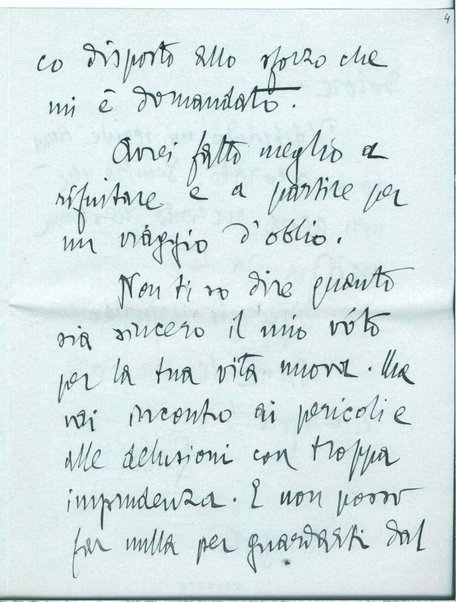 4
co disposto allo sforzo che
mi è domandato.
Avrei fatto meglio a
rifiutare e a partire per
un viaggio d'oblio.
Non ti so dire quanto
sia sincero il mio vóto
per la tua vita nuova. Ma
vai incontro ai pericoli e
alle delusioni con troppa
imprudenza. E non posso
far nulla per guardarti dal